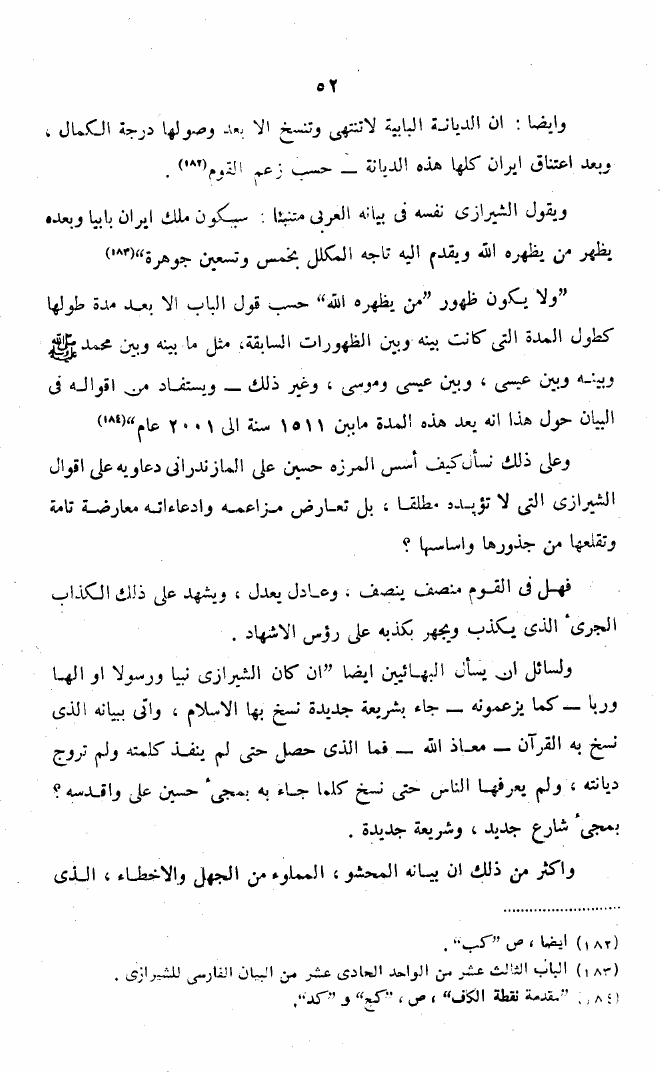 ٥٢
وايضا : ان الديانة البابية لاتنتهى وتنسخ الا بعد وصولها درجة الكمال ،
وبعد اعتناق ايران كلها هذه الديانة ــ حسب زعم القوم(١٨٢) .
ويقول الشيرازى نفسه فى بيانه العربى متنبئا : سيكون ملك ايران بابيا وبعده
يظهر من يظهره الله ويقدم اليه تاجه المكلل بخمس وتسعين جوهرة“(١٨٣)
”ولا يكون ظهور ”من يظهره الله“ حسب قول الباب الا بعد مدة طولها
كطول المدة التى كانت بينه وبين الظهورات السابقة، مثل ما بينه وبين محمد ﷺ
وبينه وبين عيسى ، وبين عيسى وموسى ، وغير ذلك ــ ويستفاد من اقواله فى
البيان حول هذا انه يعد هذه المدة مابين ١٥١١ سنة الى ٢٠٠١ عام“(١٨٤)
وعلى ذلك نسأل كيف أسس المرزه حسين على المازندرانى دعاويه على اقوال
الشيرازى التى لا تؤيده مطلقا ، بل تعارض مزاعمه وادعاءاته معارضة تامة
وتقلعها من جذورها واساسها ؟
فهل فى القوم منصف ينصف ، وعادل يعدل ، ويشهد على ذلك الكذاب
الجرىء الذى يكذب ويجهر بكذبه على رؤس الاشهاد .
ولسائل ان يسأل البهائيين ايضا ”ان كان الشيرازى نبيا ورسولا او الها
وربا ــ كما يزعمونه ــ جاء بشريعة جديدة نسخ بها الاسلام ، واتى ببيانه الذى
نسخ به القرآن ــ معاذ الله ــ فما الذى حصل حتى لم ينفذ كلمته ولم تروج
ديانته ، ولم يعرفها الناس حتى نسخ كلما جاء به بمجىء حسين على واقدسه ؟
بمجىء شارع جديد ، وشريعة جديدة .
واكثر من ذلك ان بيانه المحشو ، المملوء من الجهل والاخطاء ، الذى
(١٨٢) ايضا ، ص ”كب“ .
(١٨٣) الباب الثالث عشر من الواحد الحادى عشر من البيان الفارسى للشيرازى .
(١٨٤) ”مقدمة نقطة الكاف“ ، ص ، ”كج“ و ”كد“.